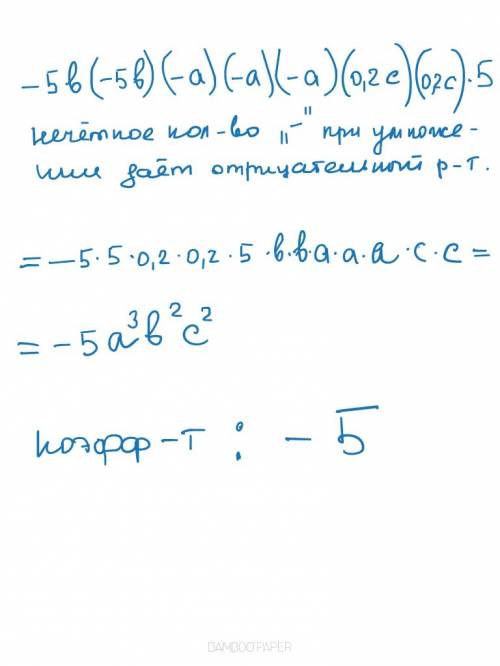 -5в(-5в)(-а)(-а)(-а)(0,2с)(0,2с)·5
нечётное кол-во „-" при умноже-
нии даёт отрицательный р-т.
= -5·5·0,2·0,2·5·в·в·а·а·а·с·с =
= -5а³в²с²
коэфф-т : -5
BAMBOOPAPER